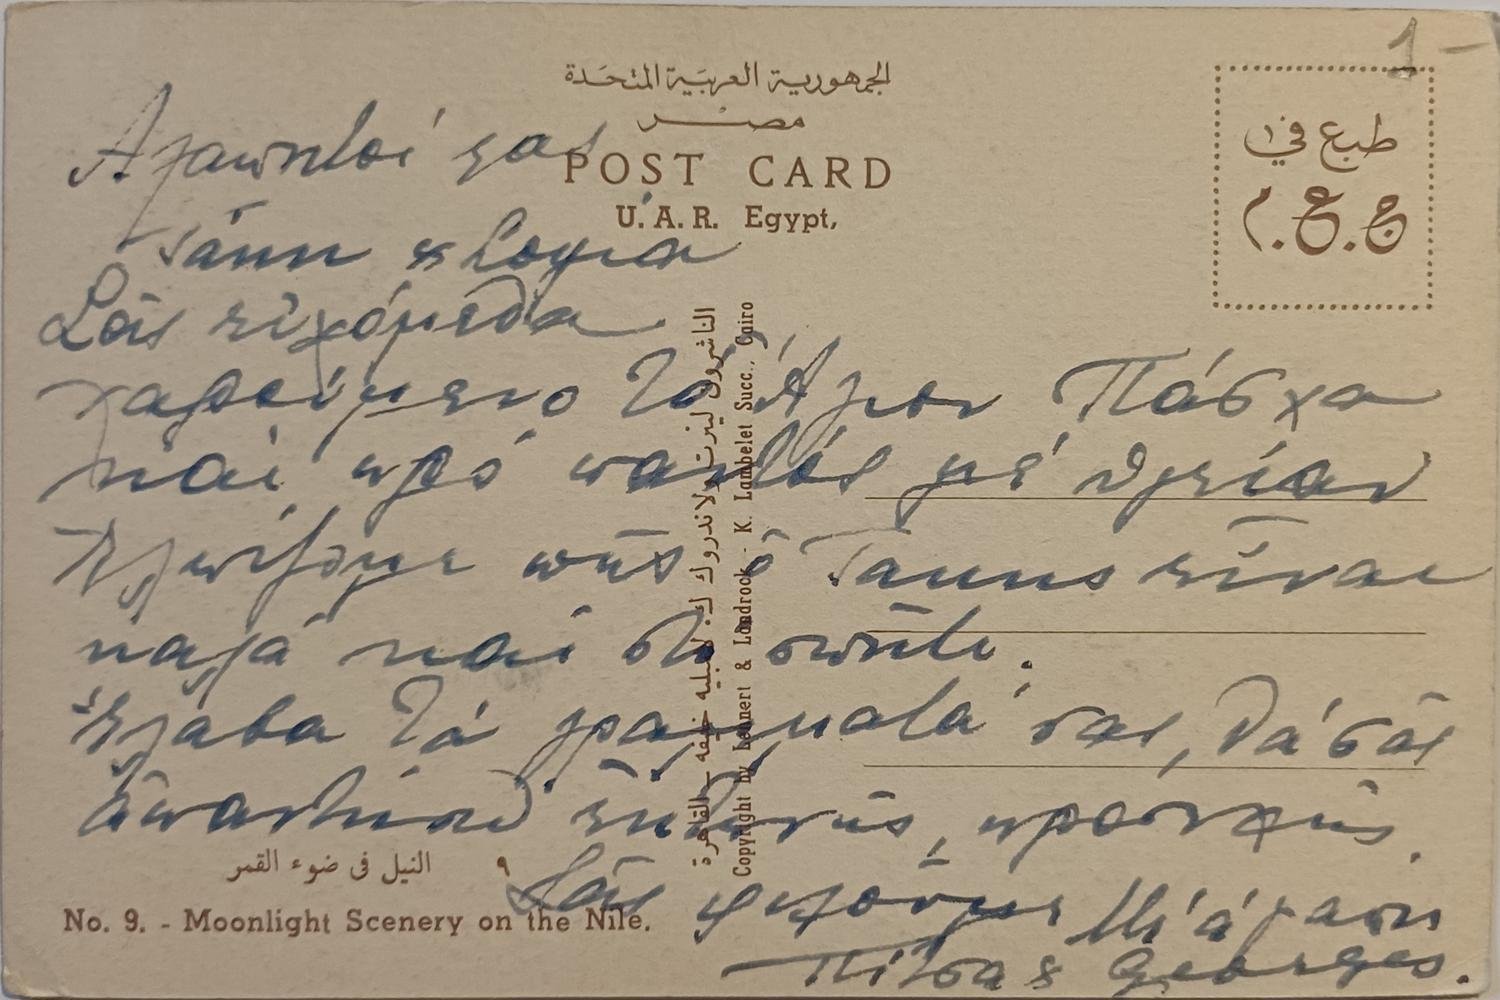 1-
الجمهورية العربية المتحدة
مصر
POST CARD
U.A.R. Egypt,
طبع في
ج.ع.م
Ἀγαπητοί σας
Γιάννη & Σοφία
Σᾶς εὐχόμεθα
χαρούμενο τό Ἅγιον Πάσχα
καί πρό παντός μέ ὑγείαν
Ἐλπίζομε πῶς ὁ Γιάννης εἶναι
καλά καί στό σπίτι.
Ἔλαβα τά γράμματά σας, θά σᾶς
ἀπαντήσω ἐκτενῶς, προσεχῶς.
Σᾶς φιλοῦμε Μέ ἀγάπη
Πίτσα & Georges.
الناشرون لينرت ولاندروك ك. لامبليه خليفه - القاهرة
Copyright by Lehnert & Landrock - K. Lambelet Succ., Cairo
النيل فى ضوء القمر ٩
No. 9. - Moonlight Scenery on the Nile.